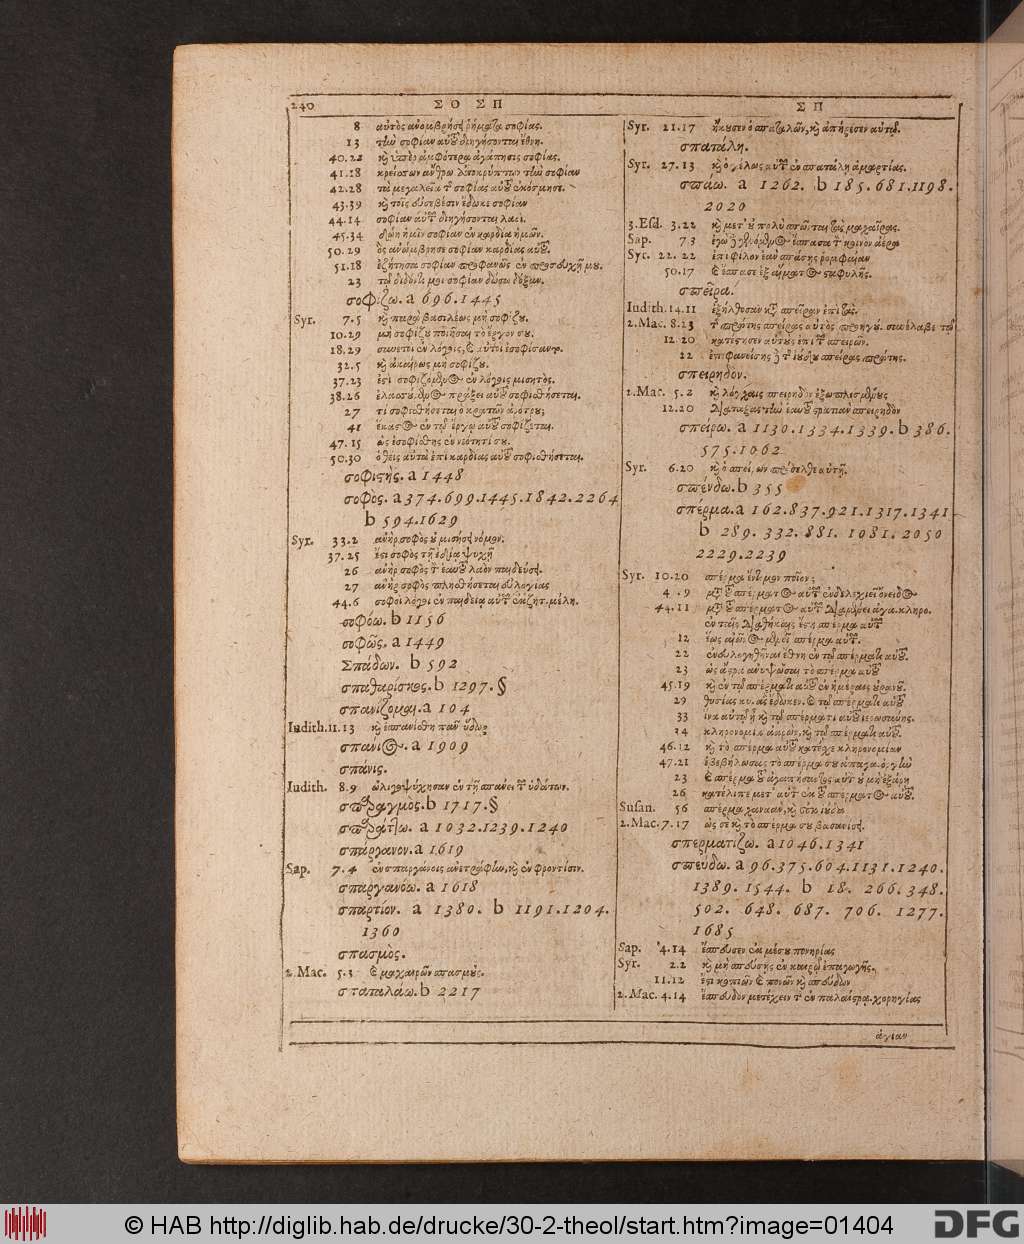 240 ΣΟ ΣΠ
8 αὐτὸς ἀνομβρήσει ῥήματα σοφίας.
13 τὴν σοφίαν αὐτοῦ διηγήσονται ἔθνη.
40.22 καὶ ὑπὲρ ἀμφότερα ἀγάπησις σοφίας.
41.18 κρείσσων ἄνθρω ἀποκρύπτων τὴν σοφίαν
42.28 τὰ μεγαλεῖα τ σοφίας αὐτοῦ ἐκόσμησε.
43.39 καὶ τοῖς εὐσεβέσιν ἔδωκε σοφίαν
44.14 σοφίαν αὐτῶν διηγήσονται λαοί.
45.34 δῴη ἡμῖν σοφίαν ἐν καρδίᾳ ἡμῶν.
50.29 ὃς ἀνώμβρησε σοφίαν καρδίας αὐτοῦ.
51.18 ἐζήτησα σοφίαν προφανῶς ἐν προσευχῇ μου.
23 τῷ διδόντι μοι σοφίαν δώσω δόξαν.
σοφίζω. a 696.1445
Syr. 7.5 καὶ παρὰ βασιλέως μὴ σοφίζου.
10.29 μὴ σοφίζου ποιῆσαι τὸ ἔργον σου.
18.29 συνετοὶ ἐν λόγοις, καὶ αὐτοὶ ἐσοφίσαντο.
32.5 καὶ ἀκαίρως μὴ σοφίζου.
37.23 ἔστι σοφιζόμενος ἐν λόγοις μισητὸς.
38.26 ἐλασσούμενος πράξει αὐτοῦ σοφισθήσεται.
27 τί σοφισθήσεται ὁ κρατῶν ἀρότρου;
41 ἕκαστος ἐν τῷ ἔργῳ αὐτοῦ σοφίζεται.
47.15 ὡς ἐσοφίσθης ἐν νεότητί σου.
50.30 ὁ θεὶς αὐτὰ ἐπὶ καρδίας αὐτοῦ σοφισθήσεται.
σοφιστής. a 1448
σοφὸς. a 374.699.1445.1842.2264
b 594.1629
Syr. 33.2 ἀνὴρ σοφὸς οὐ μισήσει νόμον.
37.25 ἔστι σοφὸς τῇ ἰδίᾳ ψυχῇ
26 ἀνὴρ σοφὸς τ ἑαυτοῦ λαὸν παιδεύσει.
27 ἀνὴρ σοφὸς πλησθήσεται εὐλογίας
44.6 σοφοὶ λόγοι ἐν παιδείᾳ αὐτῶν
σοφόω. b 1156
σοφῶς. a 1449
Σπάδων. b 592
σπαθαρίσκος. b 1297. §
σπανίζομαι. a 104
Iudith. 11.13 καὶ ἐσπανίσθη πᾶν ὕδωρ
σπάνιος. a 1909
σπάνις.
Iudith. 8.9 ὠλιγοψύχησαν ἐν τῇ σπάνει τ ὑδάτων.
σπαραγμός. b 1717. §
σπαράττω. a 1032.1239.1240
σπάργανον. a 1619
Sap. 7.4 ἐν σπαργάνοις ἀνετράφην, καὶ ἐν φροντίσιν.
σπαργανόω. a 1618
σπαρτίον. a 1380. b 1191.1204.
1360
σπασμὸς.
2. Mac. 5.3 καὶ μαχαιρῶν σπασμοὺς.
σπαταλάω. b 2217
ΣΠ
Syr. 21.17 ἤκουσεν ὁ σπαταλῶν, καὶ ἀπήρεσεν αὐτῷ.
σπατάλη.
Syr. 27.13 καὶ ὁ γέλως αὐτῶν ἐν σπατάλῃ ἁμαρτίας.
σπάω. a 1262. b 185.681.1198.
2020
3. Esd. 3.22 καὶ μετ' οὐ πολὺ σπῶνται μαχαίρας.
Sap. 7.3 ἐγὼ γενόμενος ἔσπασα τ κοινὸν ἀέρα
Syr. 22.22 ἐπὶ φίλον ἐὰν σπάσῃς ῥομφαίαν
50.17 καὶ ἔσπεισε ἐξ αἵματος σταφυλῆς.
σπεῖρα.
Iudith. 14.11 ἐξήλθοσαν κατὰ σπεῖραν ἐπὶ
2. Mac. 8.23 τ πρώτης σπείρας αὐτὸς
12.20 κατέστησεν αὐτοὺς ἐπὶ τ σπειρῶν.
22 ἐπιφανείσης σπείρας πρώτης.
σπειρηδόν.
2. Mac. 5.2 καὶ λόγχαις σπειρηδὸν ἐξωπλισμένους
12.20 διατάξας τὴν ἑαυτοῦ στρατιὰν σπειρηδὸν
σπείρω. a 1130.1334.1339. b 386.
575.1062
Syr. 6.20 καὶ ὁ σπείρων πρόσελθε αὐτῇ.
σπένδω. b 355
σπέρμα. a 162.837.921.1317.1341.
b 289. 332. 881. 1081. 2050
2229.2239
Syr. 10.20 σπέρμα ἔντιμον ποῖον;
μετὰ σπέρματος αὐτῶν ἐνδελεχιεῖ ὄνειδος
44.11 μετὰ σπέρματος αὐτῶν διαμένει ἀγα. κληρο.
ἐν ταῖς διαθήκαις ἔστη σπέρμα αὐτῶν
12 ἕως αἰῶνος μενεῖ σπέρμα αὐτῶν.
22 ἐνευλογηθῆναι ἔθνη ἐν τῷ σπέρματι αὐτοῦ.
23 ὡς ἄστρα ἀνυψῶσαι τὸ σπέρμα αὐτοῦ
45.19 καὶ ἐν τῷ σπέρματι αὐτοῦ ἐν ἡμέραις οὐρανοῦ.
29 θυσίας κυ. ἃς ἔδωκεν καὶ τῷ σπέρματι αὐτοῦ
33 ἵνα αὐτῷ ᾖ καὶ τῷ σπέρματι αὐτοῦ ἱερωσύνης.
34 κληρονομία ἀαρὼν, καὶ τῷ σπέρματι αὐτοῦ.
46.12 καὶ τὸ σπέρμα αὐτοῦ κατέσχε κληρονομίαν
47.21 ἐβεβήλωσας τὸ σπέρμα σου
23 καὶ σπέρμα τοῦ ἀγαπήσαντος αὐτὸν οὐ μὴ ἐξάρῃ
26 κατέλιπε μετ' αὐτὸν ἐκ τοῦ σπέρματος αὐτοῦ.
Susan. 56 σπέρμα χαναὰν, καὶ οὐκ ἰούδα
2. Mac. 7.17 ὡς σὲ καὶ τὸ σπέρμα σου βασανίσει.
σπερματίζω. a 1046.1341
σπεύδω. a 96.375.604.1131.1240.
1389. 1544. b 18. 266. 348.
502. 648. 687. 706. 1277.
1685
Sap. 4.14 ἔσπευσεν ἐκ μέσου πονηρίας
Syr. 2.2 καὶ μὴ σπεύσῃς ἐν καιρῷ ἐπαγωγῆς.
11.12 ἔστι κοπιῶν καὶ πονῶν καὶ σπεύδων
2. Mac. 4.14 ἔσπευδον μετέχειν τ ἐν παλαίστρᾳ χορηγίας
ἁγίαν
© HAB http://diglib.hab.de/drucke/30-2-theol/start.htm?image=01404
DFG